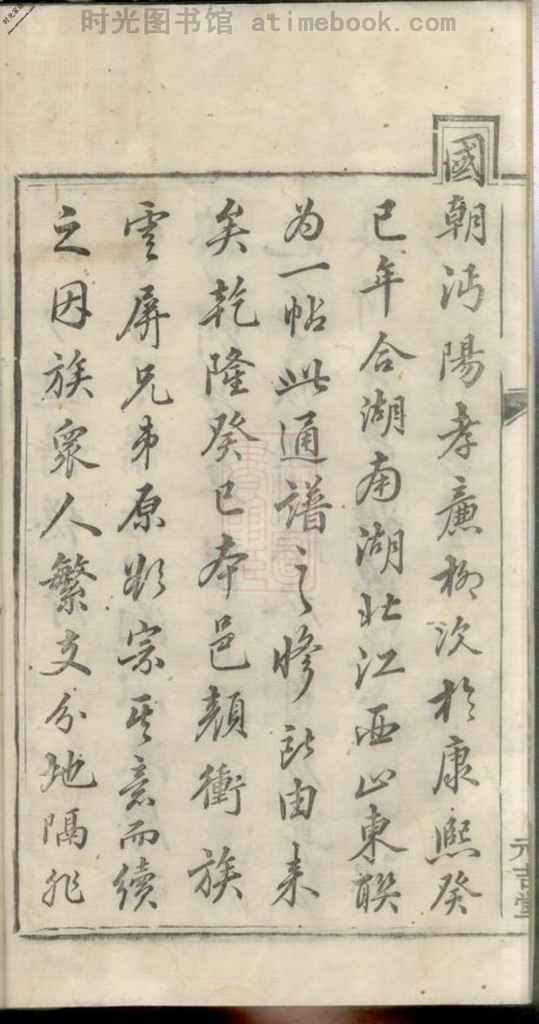 时光图书馆 atimebook.com
國朝沔陽孝廉柳次於康熙癸
巳年合湖南湖北江西山東聯
为一帖此通譜之修所由来
矣乾隆癸巳本邑顔衝族
雲屏兄弟原欲宗其意而續
之因族衆人繁支分地隔非
元吉堂